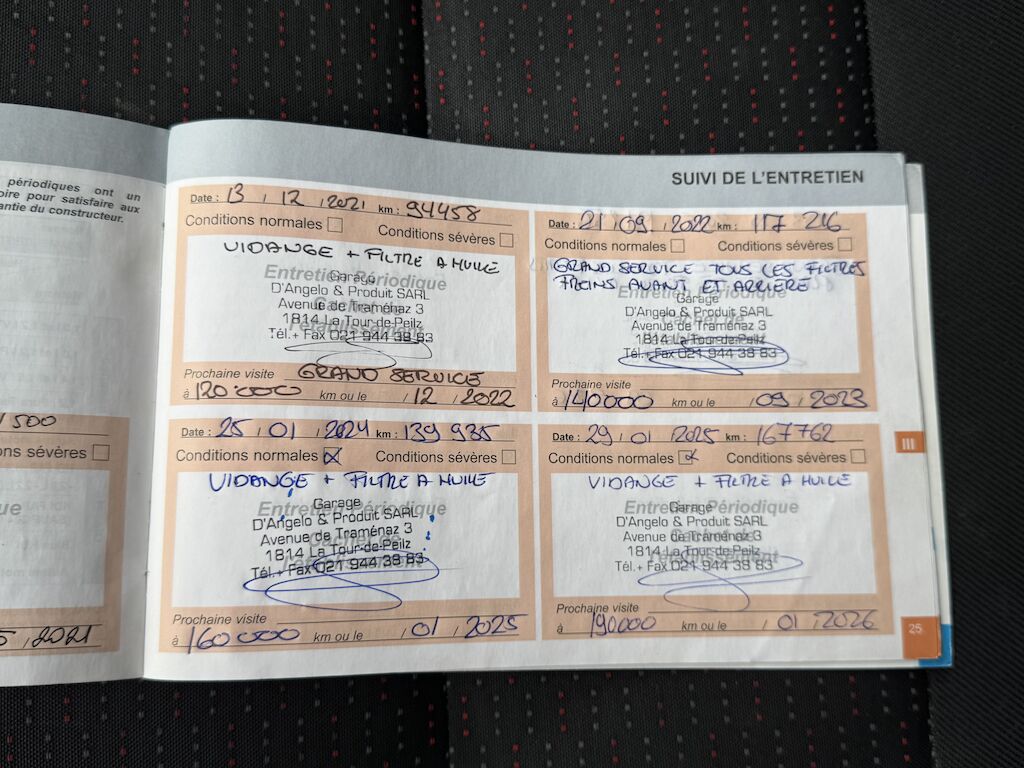 périodiques ont un
oire pour satisfaire aux
antie du constructeur.
500
ons sévères
ue
5 / 2021
SUIVI DE L'ENTRETIEN
Date : 13 / 12 / 2021 km : 94458
Conditions normales Conditions sévères
VIDANGE + FILTRE A HUILE
Entretien Périodique
Garage
D'Angelo & Produit SARL
Cachet de
Avenue de Traménaz 3
1814 La Tour-de-Peilz
l'établissement
Tél.+ Fax 021 944 38 83
Prochaine visite GRAND SERVICE
à 120'000 km ou le / 12 / 2022
Date : 21 / 09 / 2022 km : 117 216
Conditions normales Conditions sévères
GRAND SERVICE TOUS LES FILTRES
FREINS AVANT ET ARRIERE
Entretien Périodique
Garage
D'Angelo & Produit SARL
Cachet de
Avenue de Traménaz 3
1814 La Tour-de-Peilz
l'établissement
Tél.+ Fax 021 944 38 83
Prochaine visite
à 140000 km ou le / 09 / 2023
Date : 25 / 01 / 2024 km : 139 935
Conditions normales Conditions sévères
VIDANGE + FILTRE A HUILE
Entretien Périodique
Garage
D'Angelo & Produit SARL
Cachet de
Avenue de Traménaz 3
1814 La Tour-de-Peilz
l'établissement
Tél.+ Fax 021 944 38 83
Prochaine visite
à 160000 km ou le / 01 / 2025
Date : 29 / 01 / 2025 km : 167762
Conditions normales Conditions sévères
VIDANGE + FILTRE A HUILE
Entretien Périodique
Garage
D'Angelo & Produit SARL
Cachet de
Avenue de Traménaz 3
1814 La Tour-de-Peilz
l'établissement
Tél.+ Fax 021 944 38 83
Prochaine visite
à 190000 km ou le / 01 / 2026
III
25